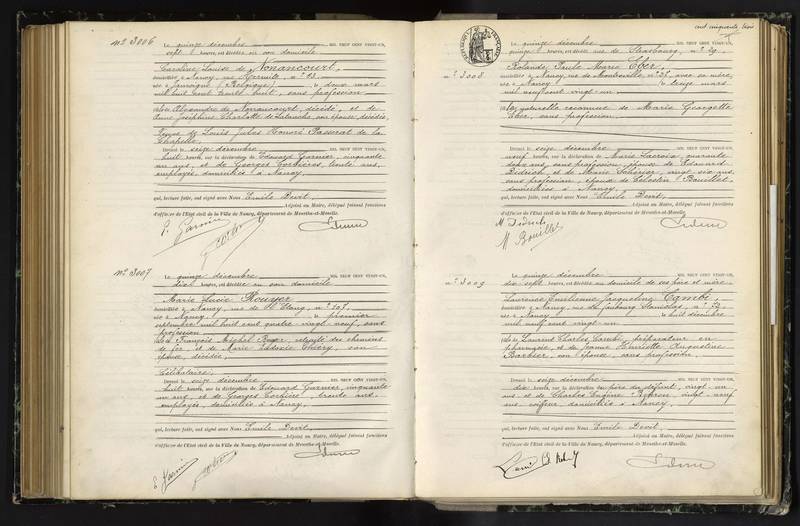 N° 3006
Le quinze décembre MIL NEUF CENT VINGT-UN,
sept heures, est décédée en son domicile
Caroline Louise de Nonancourt,
domiciliée à Nancy, rue Hermite, n° 13.
née à Jamoigne (Belgique) le douze mars
mil huit cent trente huit, sans profession
fille de Alexandre de Nonancourt, décédé, et de
Anne Joséphine Charlotte de Lalanche, son épouse, décédée,
Veuve de Louis Jules Honoré Passerat de la
Chapelle,
Dressé le seize décembre MIL NEUF CENT VINGT-UN,
huit heures, sur la déclaration de Edouard Garnier, cinquante
un ans, et de Georges Corbières, trente ans,
employés, domiciliés à Nancy,
qui, lecture faite, ont signé avec Nous Emile Devit,
Adjoint au Maire, délégué faisant fonctions
d'officier de l'Etat civil de la Ville de Nancy, département de Meurthe-et-Moselle.
N° 3007
Le quinze décembre MIL NEUF CENT VINGT-UN,
dix heures, est décédée en son domicile
Marie Lucie Rouyer
domiciliée à Nancy, rue de
née à Nancy, le premier
septembre mil huit cent quatre vingt neuf, sans
profession
fille de François Michel Rouyer, retraité des chemins
de fer, et de Marie Thiéry, son
épouse, décédée,
Célibataire,
Dressé le seize décembre MIL NEUF CENT VINGT-UN,
huit heures, sur la déclaration de Edouard Garnier, cinquante
un ans, et de Georges Corbières, trente ans,
employés, domiciliés à Nancy,
qui, lecture faite, ont signé avec Nous Emile Devit,
Adjoint au Maire, délégué faisant fonctions
d'officier de l'Etat civil de la Ville de Nancy, département de Meurthe-et-Moselle.
cent cinquante trois
N° 3008
Le quinze décembre MIL NEUF CENT VINGT-UN,
quinze heures, est décédé rue de Strasbourg, n° 29,
Rolande Paule Marie Eber
domiciliée à Nancy, rue de n° 37, avec sa mère,
née à Nancy, le treize mars
mil neuf cent vingt un
fille naturelle reconnue de Marie Georgette
Eber, sans profession.
Dressé le seize décembre MIL NEUF CENT VINGT-UN,
neuf heures, sur la déclaration de Marie Lacroix, quarante
deux ans, sans profession, épouse de Edouard
Didrich, et de Marie Scherrer, vingt six ans,
sans profession, épouse de Célestin Bouillet,
domiciliées à Nancy,
qui, lecture faite, ont signé avec Nous Emile Devit,
Adjoint au Maire, délégué faisant fonctions
d'officier de l'Etat civil de la Ville de Nancy, département de Meurthe-et-Moselle.
M. Didrich
M. Bouillet
N° 3009
Le quinze décembre MIL NEUF CENT VINGT-UN,
dix sept heures, est décédée au domicile de ses père et mère
Laurence Emilienne Jacqueline Cambi,
domiciliée à Nancy, rue du faubourg Stanislas, n° 52
née à Nancy, le huit décembre
mil neuf cent vingt un
fille de Laurent Charles Cambi, préparateur en
pharmacie, et de Jeanne Henriette Augustine
Barbier, son épouse, sans profession,
Dressé le seize décembre MIL NEUF CENT VINGT-UN,
dix heures, sur la déclaration du père du défunt, vingt un
ans, et de Charles Eugène vingt neuf
ans, coiffeur, domiciliés à Nancy,
qui, lecture faite, ont signé avec Nous Emile Devit,
Adjoint au Maire, délégué faisant fonctions
d'officier de l'Etat civil de la Ville de Nancy, département de Meurthe-et-Moselle.